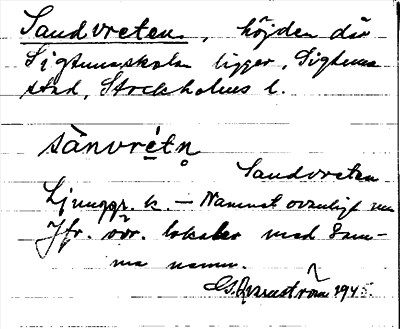 Sandvreten, höjden där
Sigtunaskolan ligger, Sigtuna
stad, Stockholms l.
sànvrétn̥
Sandvreten
Ljunggr. k. — Namnet ovanligt
Jfr. övr. lokaler med sam-
ma namn.
1945.